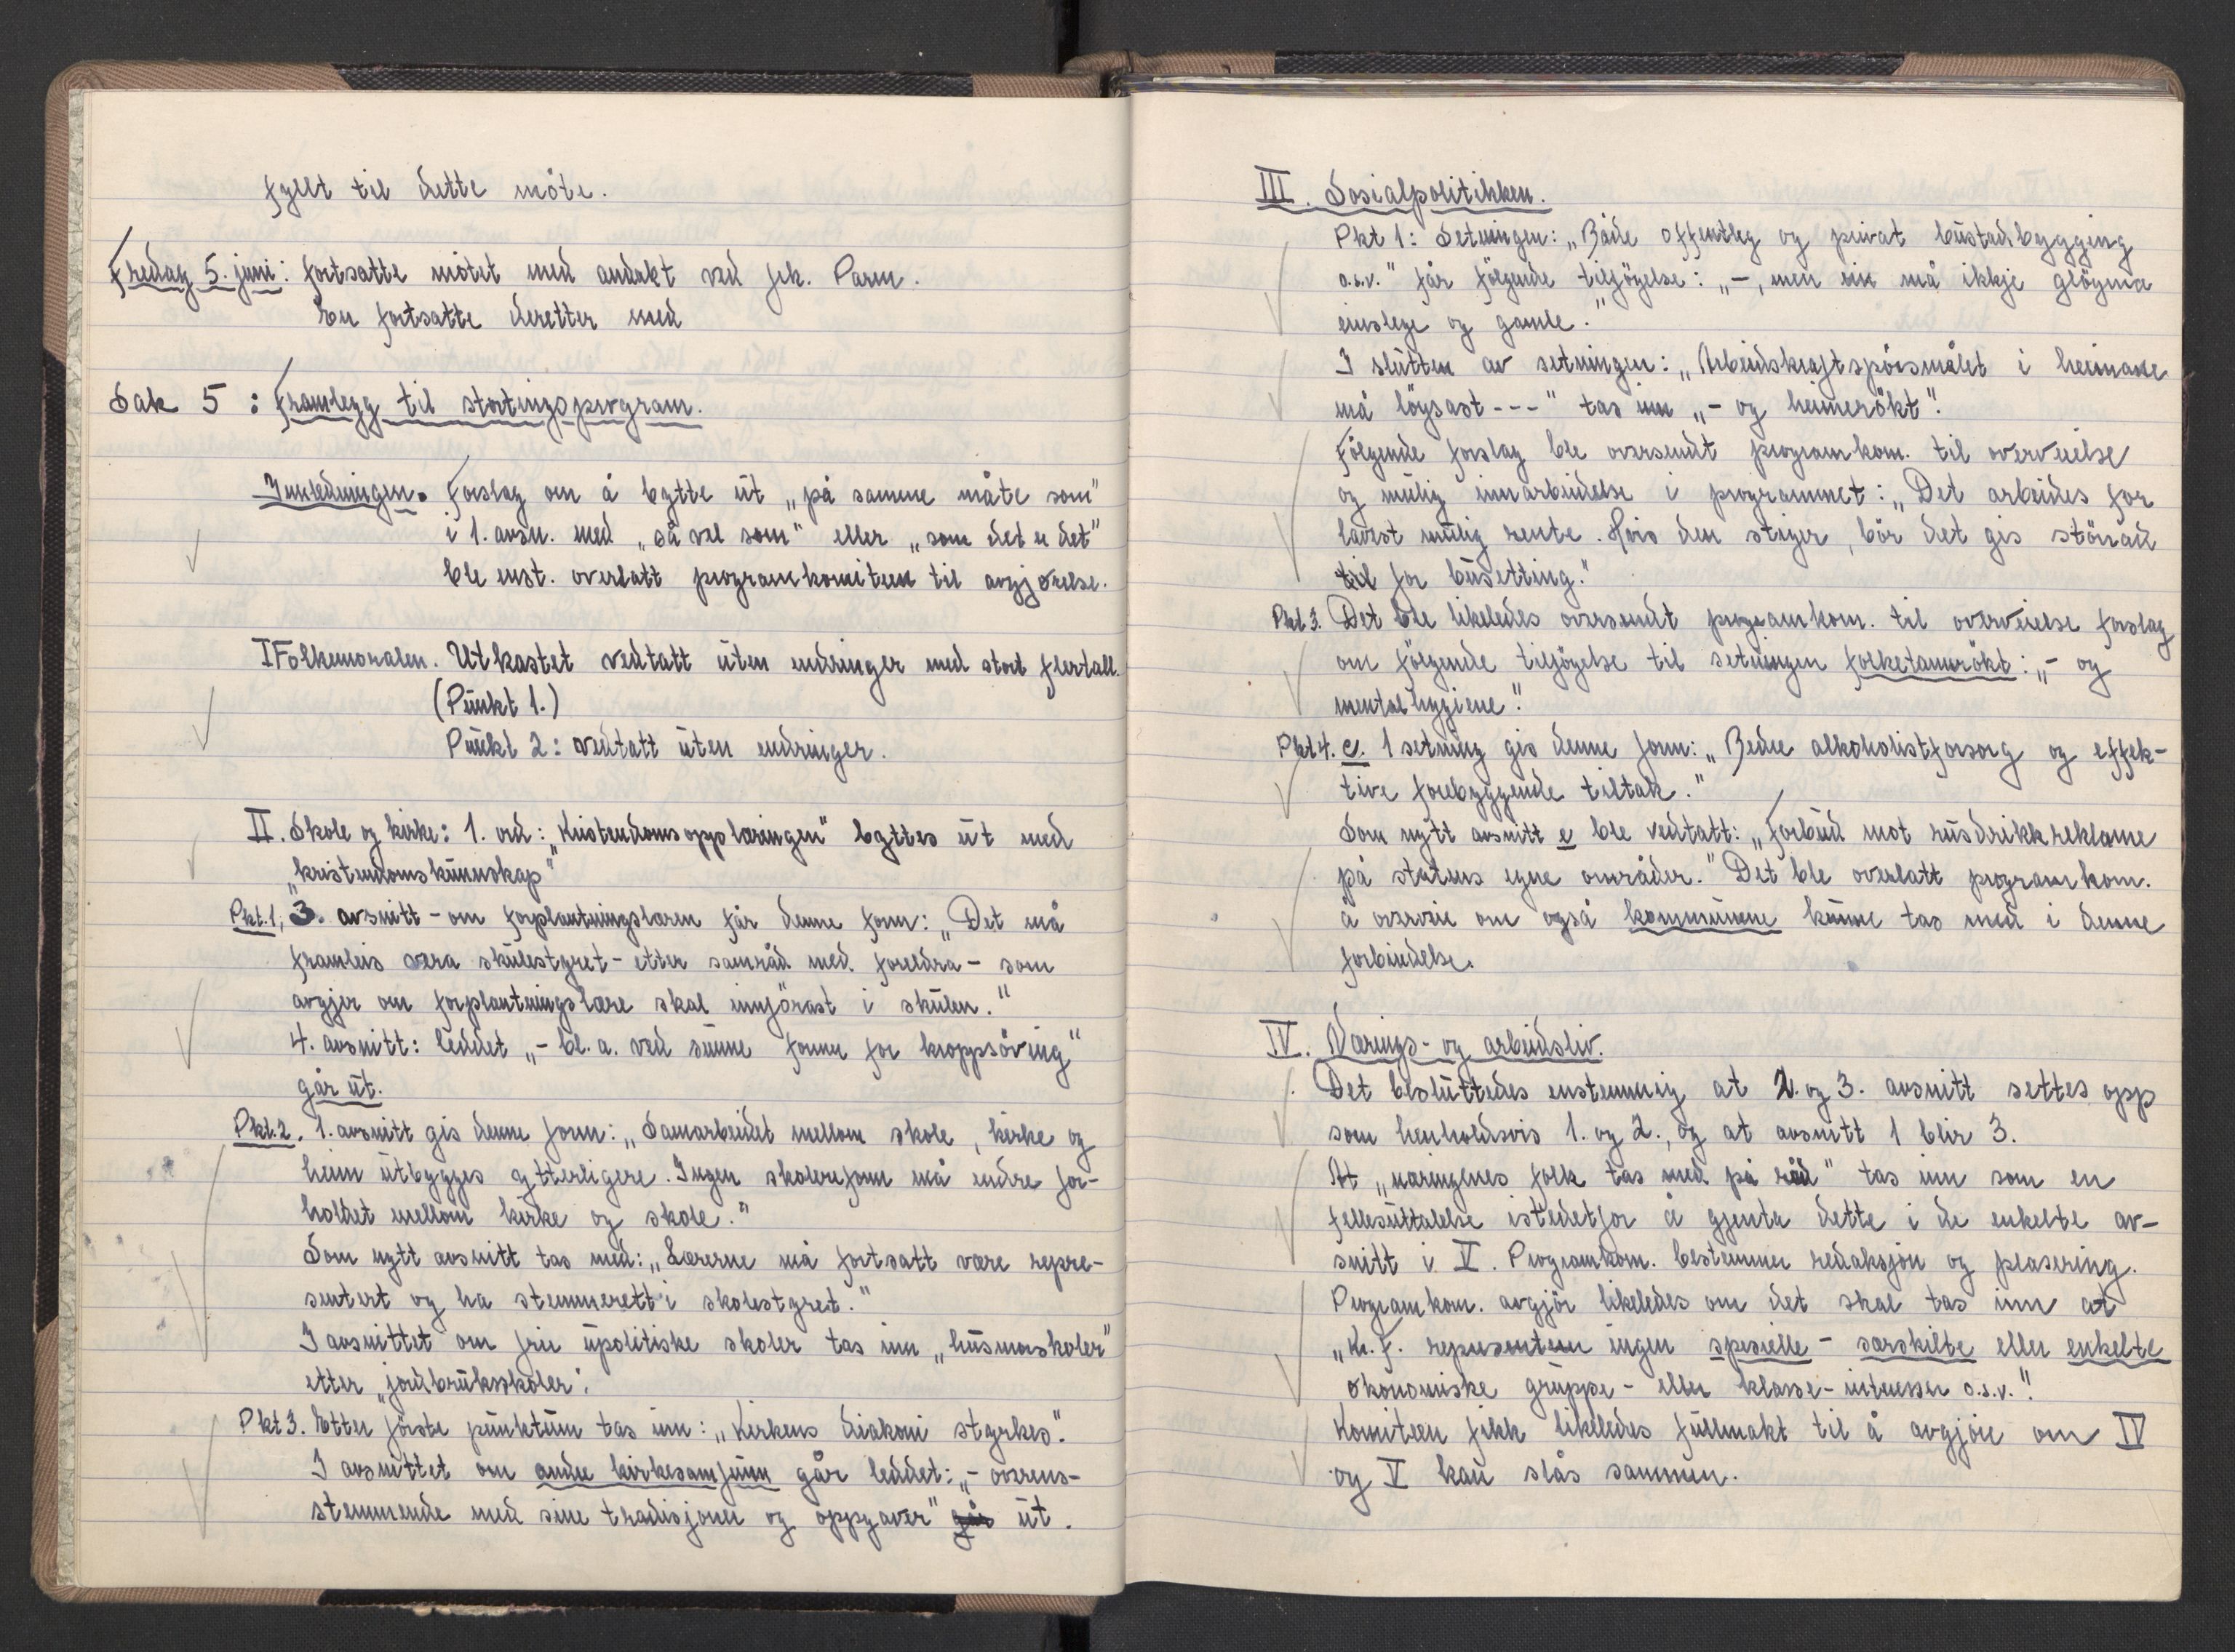 fyllt til dette møte.
Fredag 5. juni: fortsatte møtet med andakt ved frk. Parm.
En fortsatte deretter med
Sak 5: Framlegg til stortingsprogram.
Innledningen. Forslag om å bytte ut „på samme måte som"
i 1. avsn. med „så vel som" eller „som det er det"
ble enst. overlatt programkomiteen til avgjørelse.
I Folkemoralen. Utkastet vedtatt uten endringer med stort flertall.
(Punkt 1.)
Punkt 2: vedtatt uten endringer.
II. Skole og kirke: 1. ord: „Kristendomsopplæringen" byttes ut med
„kristendomskunnskap"
Pkt. 1, 3. avsnitt - om forplantningslæren får denne form: „Det må
framleis vera skulestyret - etter samråd med foreldra - som
avgjer om forplantningslære skal innførast i skulen."
4. avsnitt: leddet „- bl.a. ved sunne former for kroppsøving"
går ut.
Pkt. 2. 1. avsnitt gis denne form: „Samarbeidet mellom skole, kirke og
heim utbygges ytterligere. Ingen skolereform må endre for-
holdet mellom kirke og skole."
Som nytt avsnitt tas med: „Lærerne må fortsatt være repre-
sentert og ha stemmerett i skolestyret."
I avsnittet om frie upolitiske skoler tas inn „husmorskoler"
etter „jordbruksskoler".
Pkt 3. Etter første punktum tas inn: „Kirkens diakoni styrkes".
I avsnittet om andre kirkesamfunn går leddet: „- overens-
stemmende med sine tradisjoner og oppgaver" går ut.
III. Sosialpolitikken.
Pkt 1: Setningen: „Både offentleg og privat bustadbygging
o.s.v." får følgende tilføyelse: „-, men ein må ikkje gløyma
einslege og gamle."
I slutten av setningen: „Arbeidskraftspørsmålet i heimane
må løysast ---" tas inn „- og heimerøkt".
Følgende forslag ble oversendt programkom. til overveielse
og mulig innarbeidelse i programmet: „Det arbeides for
lavest mulig rente. Hvis den stiger, bør det gis stønad
til for busetting."
Pkt 3. Det ble likeledes oversendt programkom. til overveielse forslag
om følgende tilføyelse til setningen folketannrøkt: „- og
mentalhygiene".
Pkt 4. c. 1 setning gis denne form: „Bedre alkoholistforsorg og effek-
tive forebyggende tiltak."
Som nytt avsnitt e ble vedtatt: „Forbud mot rusdrikkreklame
på statens egne områder." Det ble overlatt programkom.
å overveie om også kommunene kunne tas med i denne
forbindelse.
IV. Nærings- og arbeidsliv.
Det besluttedes enstemmig at 2. og 3. avsnitt settes opp
som henholdsvis 1. og 2., og at avsnitt 1 blir 3.
At „næringenes folk tas med på råd" tas inn som en
fellesuttalelse istedetfor å gjenta dette i de enkelte av-
snitt i V. Programkom. bestemmer redaksjon og plasering.
Programkom. avgjør likeledes om det skal tas inn at
„Kr. F. representerer ingen spesielle - særskilte eller enkelte
økonomiske gruppe- eller klasse-interesser o.s.v.".
Komiteen fikk likeledes fullmakt til å avgjøre om IV
og V kan slås sammen.